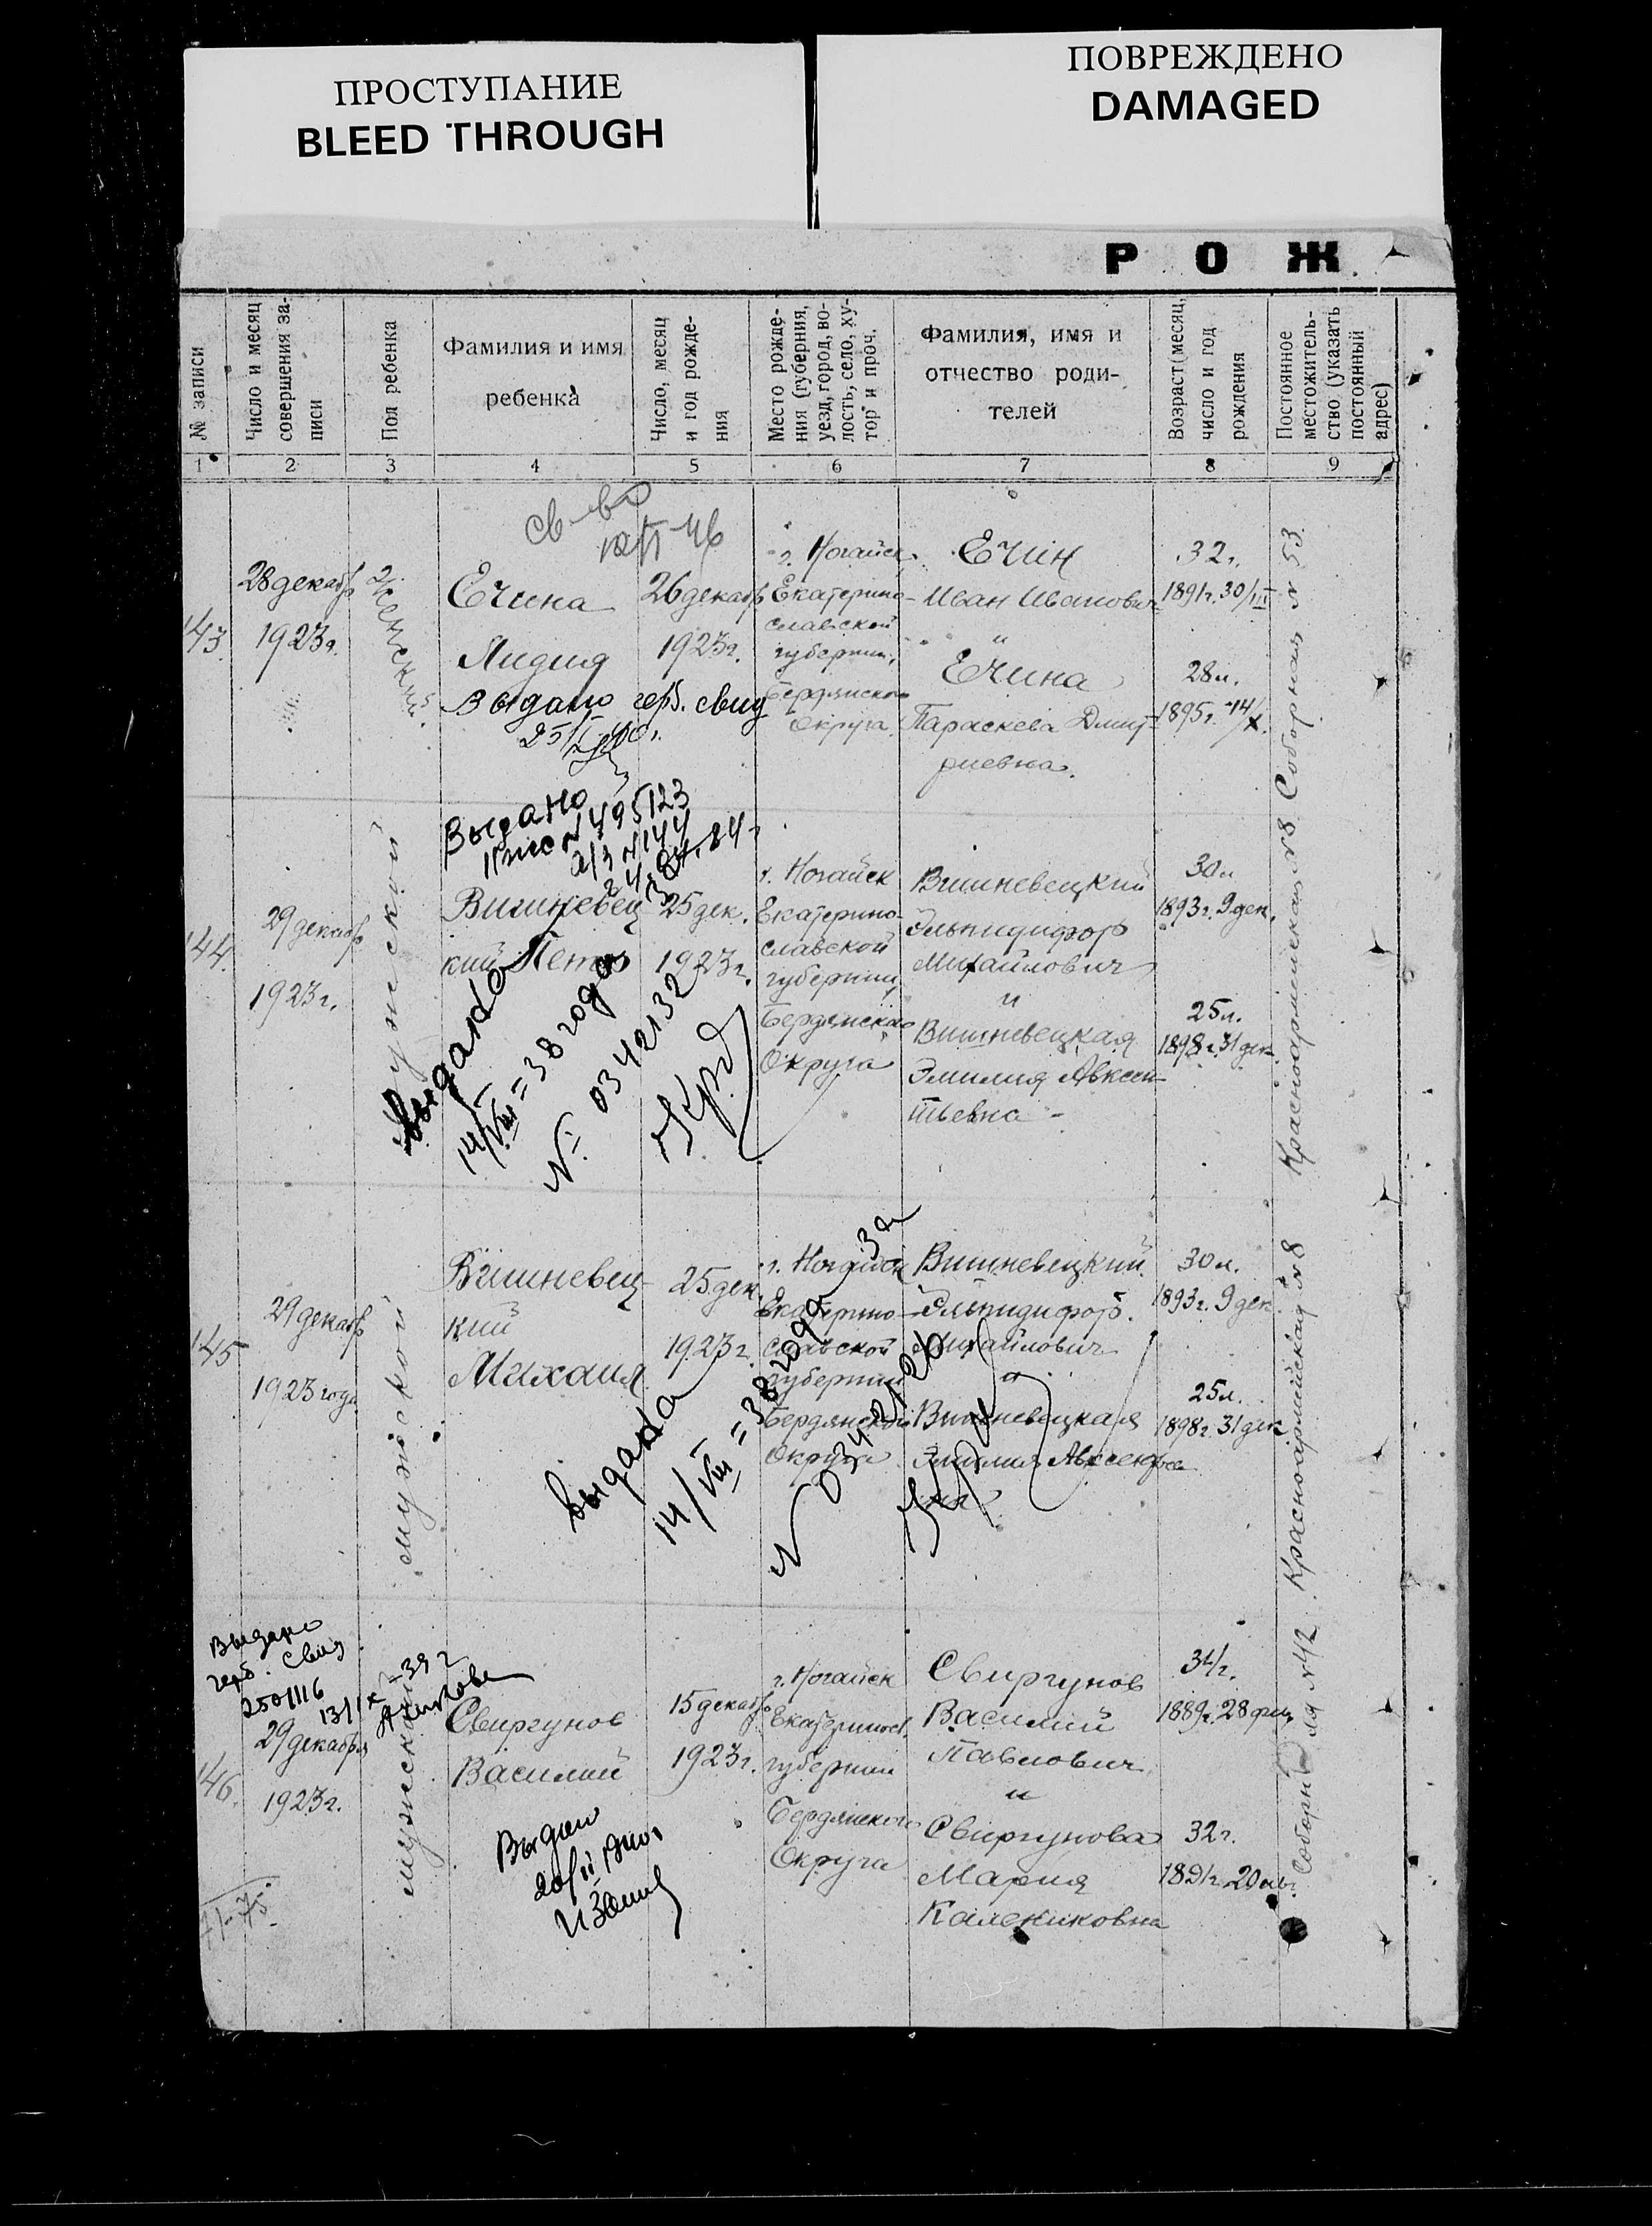 ПРОСТУПАНИЕ
BLEED THROUGH
ПОВРЕЖДЕНО
DAMAGED
Р О Ж
№ записи
Число и месяц
совершения за-
писи
Пол ребенка
Фамилия и имя
ребенка
Число, месяц
и год рожде-
ния
Место рожде-
ния (губерния,
уезд, город, во-
лость, село, ху-
тор и проч.
Фамилия, имя и
отчество роди-
телей
Возраст (месяц,
число и год
рождения
Постоянное
местожитель-
ство (указать
постоянный
адрес)
1 2 3 4 5 6 7 8 9
143.
28 декабр
1923 г.
Женский.
св-во
Ечина
Лидия
Выдано герб. свид
26 декабр
1923 г.
г. Ногайск
Екатерино-
славской
губернии,
Бердянского
Округа
Ечин
Иван Иванович
и
Ечина
Параскева Дмит-
риевна.
32 г.
1891 г. 30/III
28 л.
1895 г. 14/X.
Соборная № 53.
144.
29 декабр
1923 г.
Мужской
Выдано
495123
а/з №144
Вишневец-
кий Петр
выдана
14/VIII=38 года
№ 0342132
25 дек.
1923 г.
г. Ногайск
Екатерино-
славской
губернии,
Бердянского
Округа
Вишневецкий
Эльпидифор
Михайлович
и
Вишневецкая
Эмилия Авксен-
тьевна
30 л
1893 г. 9 дек.
25 л.
1898 г. 31 дек.
Красноармейская № 8
145
29 декабр
1923 года
мужской
Вишневец-
кий
Михаил
25 дек.
1923 г.
г. Ногайск
Екатерино-
славской
губернии
Бердянской
Округа
выдана
14/VIII=38 года
Вишневецкий
Эльпидифор.
Михайлович
и
Вишневецкая
Эмилия Авксентьев
на
30 л.
1893 г. 9 дек
25 л.
1898 г. 31 дек
Красноармейская № 8
Выдано
герб. свид
2501116
146.
29 декабря
1923 г.
мужской
Свиргунов
Василий
Выдано
15 декабр
1923 г.
г. Ногайск
Екатеринос.
губернии
Бердянского
Округа
Свиргунов
Василий
Павлович
и
Свиргунова
Мария
Калениковна
34 г.
1889 г. 28
32 г.
1891 г. 20
Соборная № 42